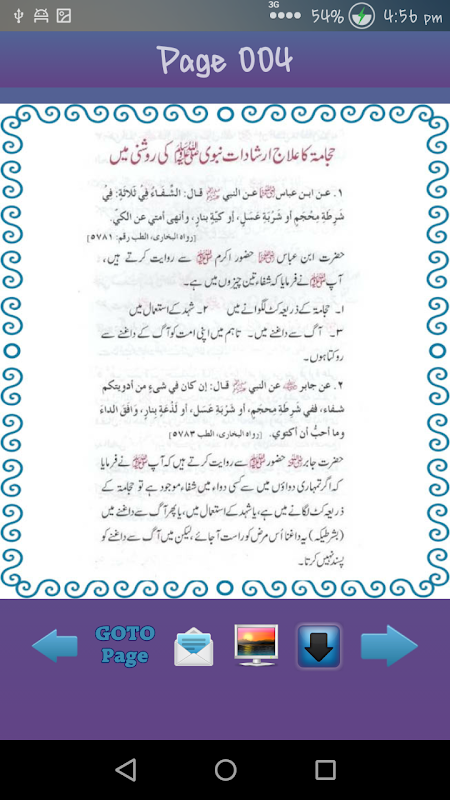 3G
54%
4:56 pm
Page 004
حجامۃ کا علاج ارشادات نبوی ﷺ کی روشنی میں
۱. عن ابن عباس عن النبي ﷺ قال: الشِّفَاءُ فِيْ ثَلاثَةٍ: فِيْ
شَرِطَةِ مِحْجَمٍ أو شَرْبَةِ عَسَلٍ، أو كَيَّةٍ بنارٍ، وأنهى أمتي عن الكيِّ.
[رواه البخاری، الطب رقم: ۵۷۸۱]
حضرت ابن عباس حضور اکرم ﷺ سے روایت کرتے ہیں،
آپ ﷺ نے فرمایا کہ شفاء تین چیزوں میں ہے۔
۱۔ حجامۃ کے ذریعہ کٹ لگوانے میں ۲۔ شہد کے استعمال میں
۳۔ آگ سے داغنے میں۔ تاہم میں اپنی امت کو آگ کے داغنے سے
روکتا ہوں۔
۲. عن جابر عن النبي ﷺ قال: إن كان في شيءٍ من أدويتكم
شفاء، ففي شَرِطَةِ مِحجمٍ، أو شَرْبَةِ عَسَلٍ، أو لَذْعَةٍ بِنارٍ، وَافَقَ الداءَ
وما أحبُّ أن أكتوي. [رواه البخاری، الطب ۵۷۸۳]
حضرت جابر حضور ﷺ سے روایت کرتے ہیں کہ آپ ﷺ نے فرمایا
کہ اگر تمہاری دواؤں میں سے کسی دواء میں شفاء موجود ہے تو حجامۃ کے
ذریعہ کٹ لگانے میں ہے، یا شہد کے استعمال میں، یا پھر آگ سے داغنے میں
(بشرطیکہ) یہ داغنا اُس مرض کو راست آجائے، لیکن میں آگ سے داغنے کو
پسند نہیں کرتا۔
GOTO
Page